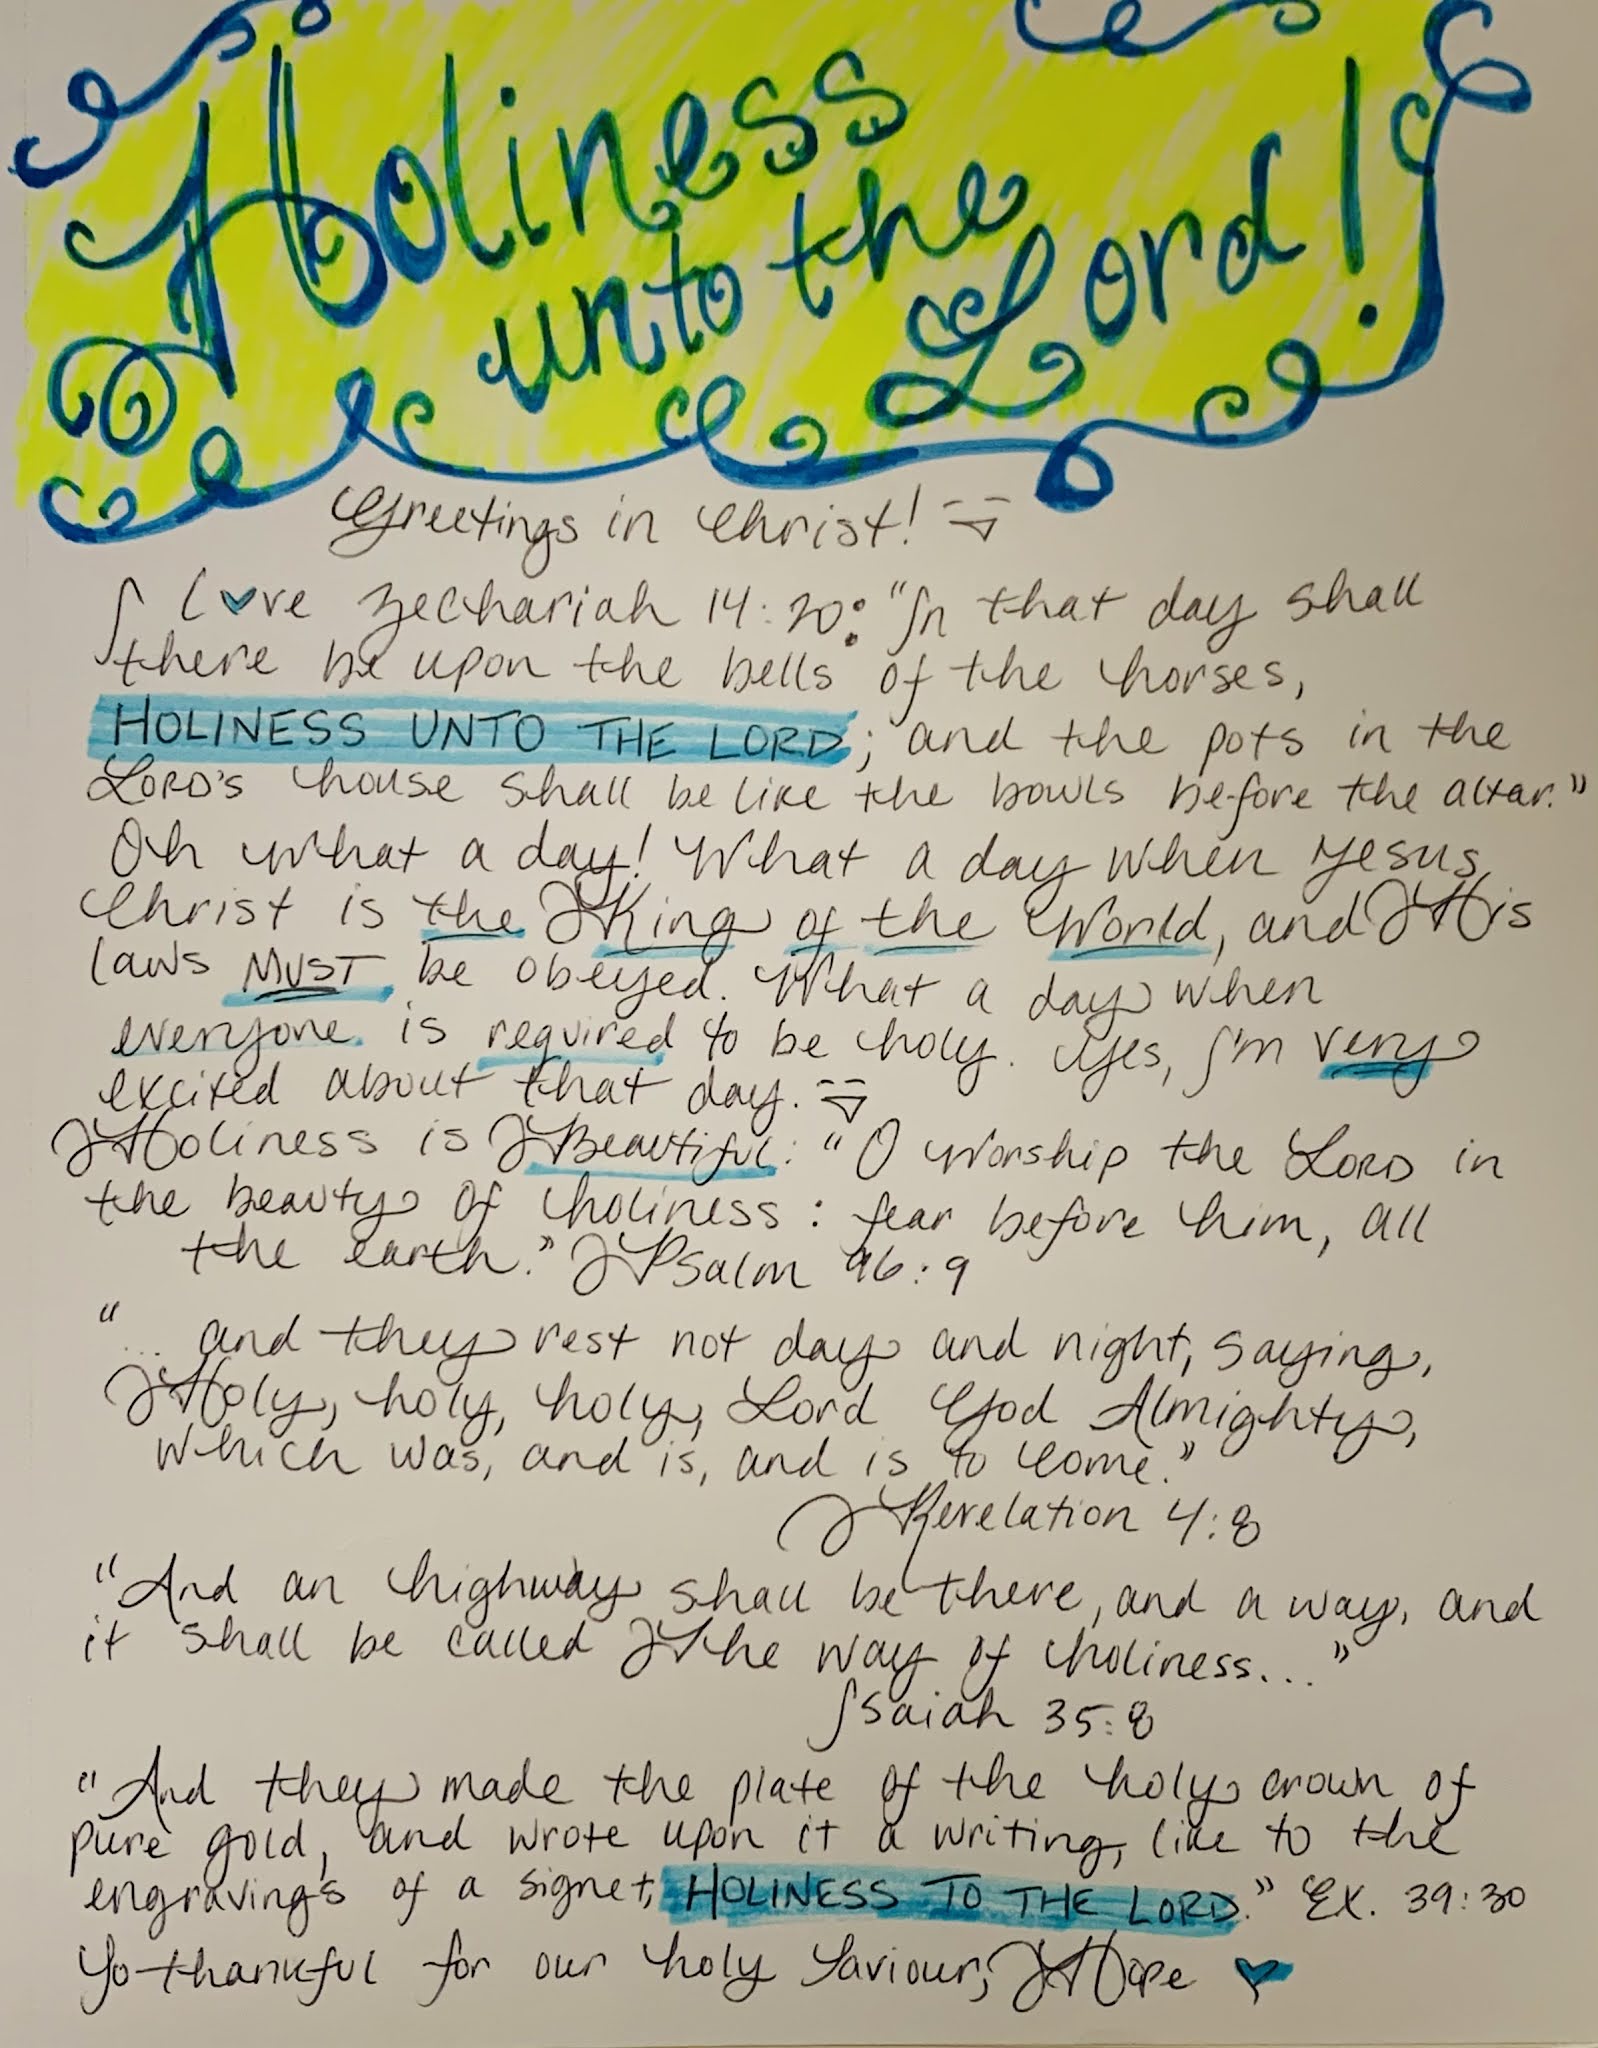 Holiness
unto the
Lord!
Greetings in Christ!
I love Zechariah 14:20: "In that day shall
there be upon the bells of the horses,
HOLINESS UNTO THE LORD; and the pots in the
LORD'S house shall be like the bowls before the altar."
Oh what a day! What a day when Jesus
Christ is the King of the World, and His
laws MUST be obeyed. What a day when
everyone is required to be holy. Yes, I'm very
excited about that day.
Holiness is Beautiful: "O worship the LORD in
the beauty of holiness: fear before him, all
the earth." Psalm 96:9
"... and they rest not day and night, saying,
Holy, holy, holy, Lord God Almighty,
which was, and is, and is to come."
Revelation 4:8
"And an highway shall be there, and a way, and
it shall be called The way of holiness..."
Isaiah 35:8
"And they made the plate of the holy crown of
pure gold, and wrote upon it a writing, like to the
engravings of a signet, HOLINESS TO THE LORD." Ex. 39:30
So thankful for our holy Saviour, Hope